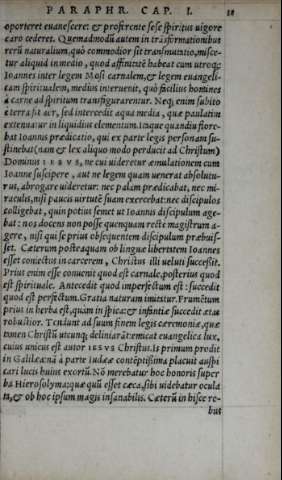 PARAPHR. CAP. I.
oporteret euanescere: & proficente sese spiritus uigore
caro cederet. Quemadmodū autem in trāsformationibus
rerū naturalium, quò commodior sit transmutatio, misce-
tur aliquid in medio, quod affinitatē habeat cum utroq;:
Ioannes inter legem Mosi carnalem, & legem euangeli-
cam spiritualem, medius interuenit, quò facilius homines
à carne ad spiritum transfigurarentur. Neq; enim subito
è terra fit aër, sed intercedit aqua media, quæ paulatim
extenuatur in liquidius elementum. Itaque quandiu flore-
bat Ioannis prædicatio, qui ex parte legis personam su-
stinebat (nam & lex aliquo modo perducit ad Christum)
Dominus IESVS, ne cui uideretur æmulationem cum
Ioanne suscipere, aut ne legem quam uenerat absolutu-
rus, abrogare uideretur: nec palàm prædicabat, nec mi-
raculis, nisi paucis uirtutē suam exercebat: nec discipulos
colligebat, quin potius semet ut Ioannis discipulum age-
bat: nos docens non posse quenquam rectè magistrum a-
gere, nisi qui se prius obsequentem discipulum præbuis-
set. Cæterum posteaquam ob linguæ libertatem Ioannes
esset coniectus in carcerem, Christus illi ueluti successit.
Prius enim esse conuenit quod est carnale, posterius quod
est spirituale. Antecedit quod imperfectum est: succedit
quod est perfectum. Gratia naturam imitatur. Frumētum
prius in herba est, quàm in spica: & infantiæ succedit ætas
robustior. Tendunt ad suum finem legis cæremoniæ, quæ
tamen Christū utcunq; deliniarāt: emicat euangelica lux,
cuius unicus est autor IESVS Christus. Is primum prodit
in Galilæa: nā à parte Iudææ contēptissima placuit auspi
cari lucis huius exortū. Nō merebatur hoc honoris super
ba Hierosolyma: quæ quū esset cæca, sibi uidebatur ocula
ta, & ob hoc ipsum magis insanabilis. Cæterū in hisce re-
bus